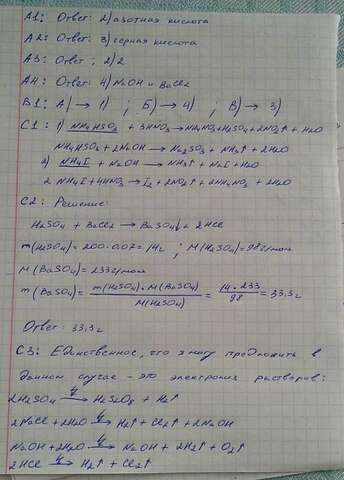 А1: Ответ: 2) азотная кислота
А2: Ответ: 3) серная кислота
А3: Ответ: 2) 2
А4: Ответ: 4) NaOH и BaCl2
В1: А) → 1) ; Б) → 4) ; В) → 3)
С1: 1) NH4HSO3 + 3HNO3 → NH4NO3 + H2SO4 + 2NO2↑ + H2O
NH4HSO3 + 2NaOH → Na2SO3 + NH3↑ + 2H2O
2) NH4I + NaOH → NH3↑ + NaI + H2O
2 NH4I + 4HNO3 → I2 + 2NO2↑ + 2NH4NO3 + 2H2O
С2: Решение:
H2SO4 + BaCl2 → BaSO4↓ + 2HCl
m(H2SO4) = 200·0.07 = 14г ; M(H2SO4) = 98г/моль
M(BaSO4) = 233г/моль
m(BaSO4) = m(H2SO4)·M(BaSO4) / M(H2SO4) = 14·233 / 98 = 33,3г
Ответ: 33,3г
С3: Единственное, что я могу предложить в
данном случае - это электролиз растворов:
2H2SO4 → H2S2O8 + H2↑
2NaCl + 2H2O → H2↑ + Cl2↑ + 2NaOH
NaOH + 2H2O → NaOH + 2H2↑ + O2↑
2HCl → H2↑ + Cl2↑